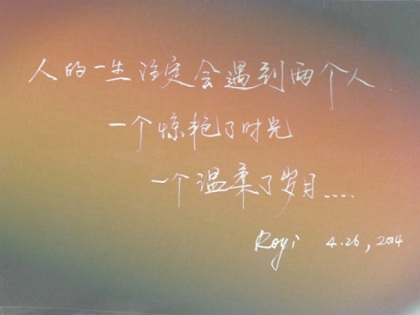 人的一生注定会遇到两个人
一个惊艳了时光
一个温柔了岁月....
Royi 4.26, 2014